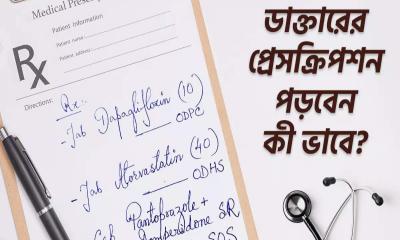 Medical Prescrip
Patient Information
Patient name:
Patient address:
Rx
Directions:
Rx:-
- Tab Dapagliflozin (10)
ODPC
- Tab Atorvastatin (40)
ODHS
Cap Pantoprazole +
Domperidone SR
SOS
ডাক্তারের
প্রেসক্রিপশন
পড়বেন
কী ভাবে?